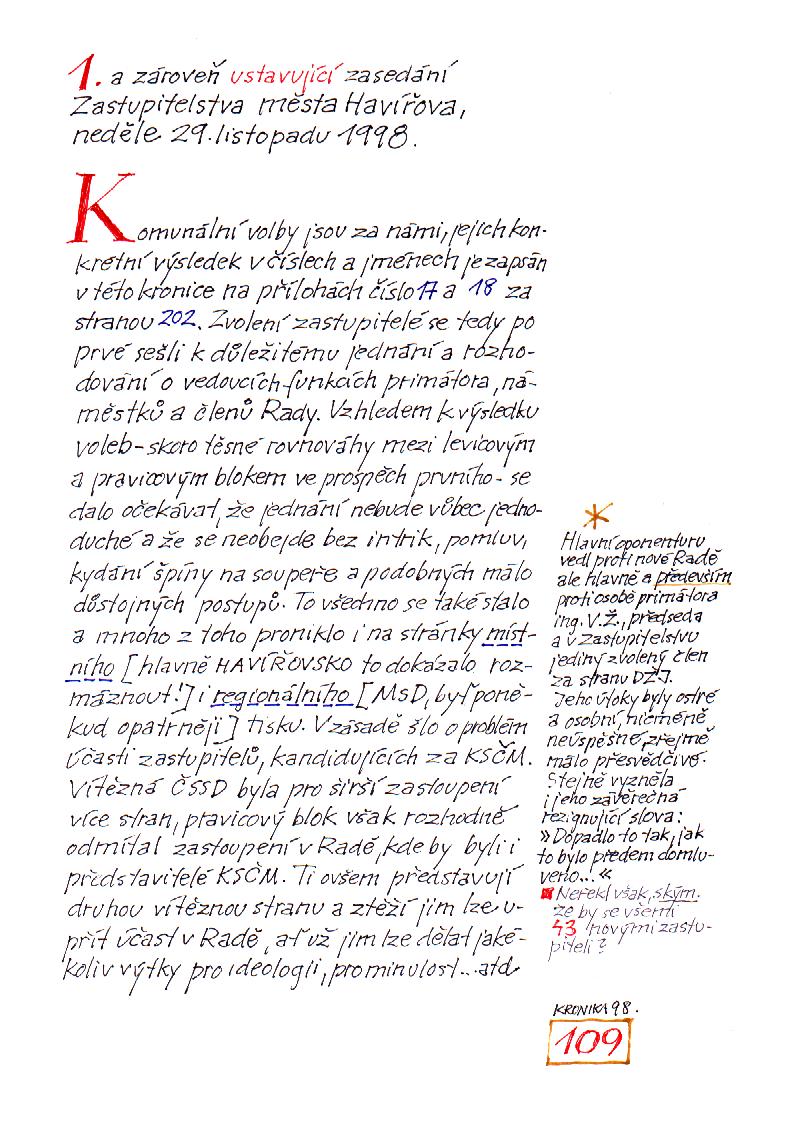 1. a zároveň ustavující zasedání
Zastupitelstva města Havířova,
neděle 29. listopadu 1998.
Komunální volby jsou za námi, jejich kon-
krétní výsledek v číslech a jménech je zapsán
v této kronice na přílohách číslo 17 a 18 za
stranou 202. Zvolení zastupitelé se tedy po
prvé sešli k důležitému jednání a rozho-
dování o vedoucích funkcích primátora, ná-
městků a členů Rady. Vzhledem k výsledku
voleb - skoro těsné rovnováhy mezi levicovým
a pravicovým blokem ve prospěch prvního - se
dalo očekávat, že jednání nebude vůbec jedno-
duché a že se neobejde bez intrik, pomluv,
kydání špíny na soupeře a podobných málo
důstojných postupů. To všechno se také stalo
a mnoho z toho proniklo i na stránky míst-
ního [hlavně HAVÍŘOVSKO to dokázalo roz-
máznout!] i regionálního [MsD, byť poně-
kud opatrněji] tisku. V zásadě šlo o problém
účasti zastupitelů, kandidujících za KSČM.
Vítězná ČSSD byla pro širší zastoupení
více stran, pravicový blok však rozhodně
odmítal zastoupení v Radě, kde by byli i
představitelé KSČM. Ti ovšem představují
druhou vítěznou stranu a ztěží jim lze u-
přít účast v Radě, ať už jim lze dělat jaké-
koliv výtky pro ideologii, pro minulost... atd
*
Hlavní oponenturu
vedl proti nové Radě
ale hlavně a především
proti osobě primátora
ing. V.Ž., předseda
a v Zastupitelstvu
jediný zvolený člen
za stranu DŽJ.
Jeho útoky byly ostré
a osobní, nicméně
neúspěšné, zřejmě
málo přesvědčivé.
Stejně vyzněla
i jeho závěrečná
rezignující slova:
»Dopadlo to tak, jak
to bylo předem domlu-
veno...«
Neřekl však, ským.
že by se všemi
43 novými zastu-
piteli?
KRONIKA 98.
109